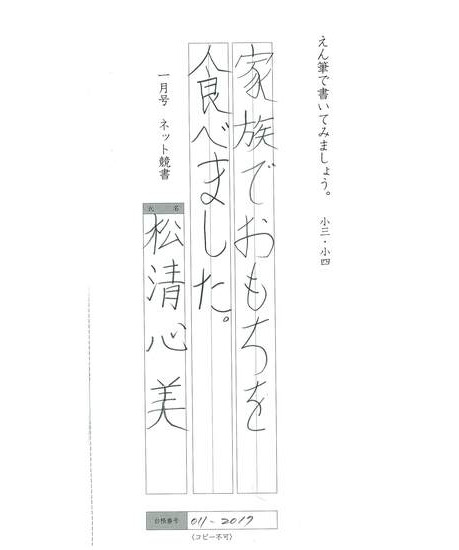 えん筆で書いてみましょう。 小三・小四
家族でおもちを
食べました。
一月号 ネット競書
氏名
松清心美
台帳番号 011-2017
(コピー不可)